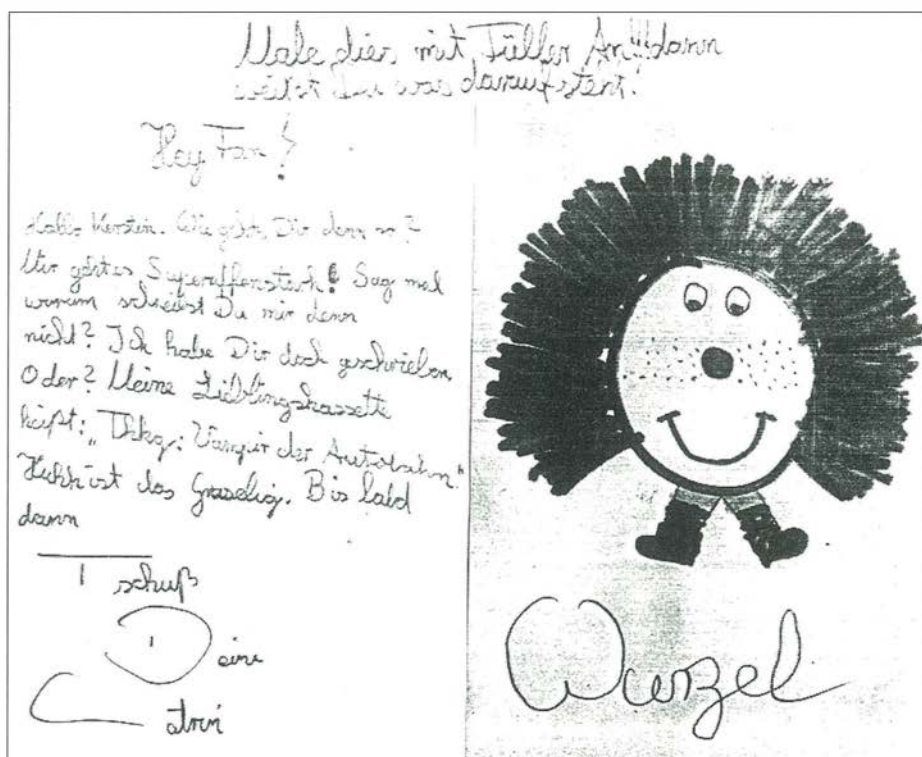 Male dies mit Füller An!!! dann
weißt Du was darauf steht!
Hey Fan!
Hallo Kerstin. Wie geht's Dir denn so?
Mir geht es Superaffenstark! Sag mal
warum schreibst Du mir denn
nicht? Ich habe Dir doch geschrieben
Oder? Meine Lieblingskassette
heißt: „Tkkg: Vampir der Autobahn"
ist das Gruselig. Bis bald
dann
Tschuß
Deine
Wurzel